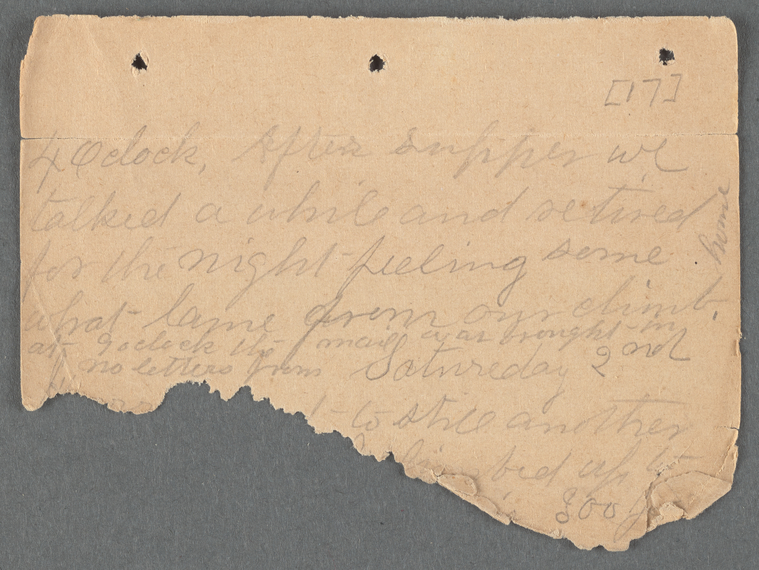 [17]
4 Oclock, After supper we
talked a while and retired
for the night feeling some
what lame from our climb.
at 9 oclock the mail was brought in
no letters from home
Saturday 2nd
to still another
climbed up to
300